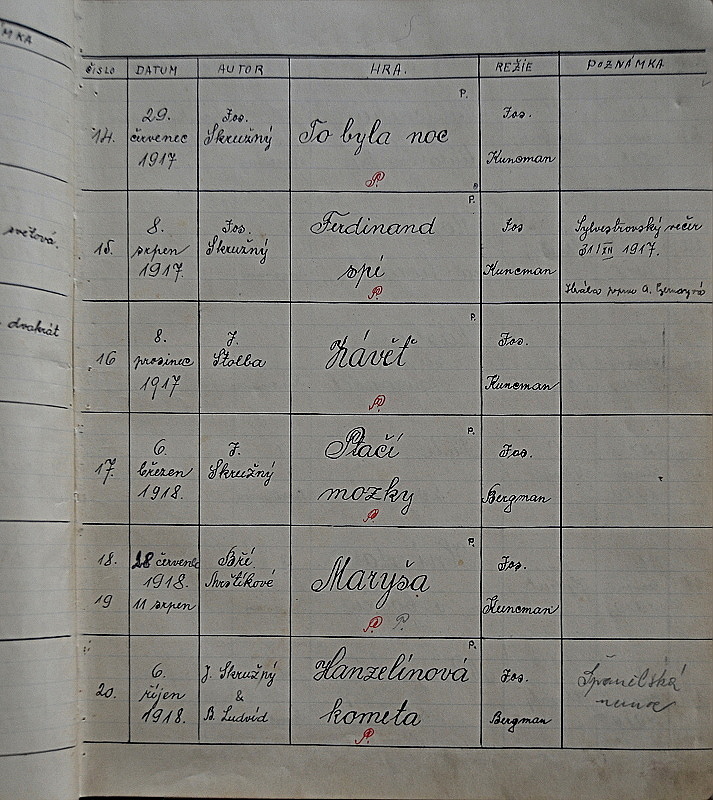 MKA
ČÍSLO DATUM AUTOR HRA. REŽIE POZNÁMKA
14. 29. červenec 1917 Jos. Skružný To byla noc P. P. Jos. Kuncman
světová.
15. 8. srpen 1917. Jos. Skružný Ferdinand spí P. P. Jos Kuncman Sylvestrovský večer 31/XII 1917.
dvakrát
16 8. prosinec 1917 J. Štolba Závěť P. P. Jos. Kuncman
17. 6. březen 1918. J. Skružný Ptačí mozky P. P. Jos. Bergman
18. 28 červenec 1918. Bří Mrštíkové Maryša P. P. P. Jos. Kuncman
19 11 srpen
20. 6. říjen 1918. J. Skružný & B. Ludvíd Hanzelínová kometa P. P. Jos. Bergman Španělská